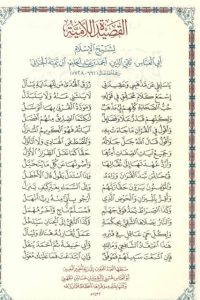 القصيدة اللامية
لشيخ الإسلام
أبي العباس تقي الدين أحمد بن عبد الحليم ابن تيمية الحراني
يا سائلي عن مذهبي وعقيدتي رزق الهدى من للهداية يسأل
اسمع كلام محقق في قوله لا ينثني عنه ولا يتبدل
حب الصحابة كلهم لي مذهب ومودة القربى بها أتوسل
ولكلهم قدر وفضل ساطع لكنما الصديق منهم أفضل
وأقول في القرآن ما جاءت به آياته فهو
وأقول قال الله جل جلاله والمصطفى الهادي ولا أتأول
وجميع آيات الصفات أمرها حقا كما نقل الطراز الأول
وأرد عهدتها إلى نقالها وأصونها عن كل ما يتخيل
قبحا لمن نبذ القران وراءه وإذا استدل يقول قال الأخطل
والمؤمنون يرون حقا ربهم وإلى السماء بغير كيف ينزل
وأقر بالميزان والحوض الذي أرجو بأني منه ريا أنهل
وكذا الصراط يمد فوق جهنم فمسلم ناج وآخر مهمل
والنار يصلاها الشقي بحكمة وكذا التقي إلى الجنان سيدخل
ولكل حي عاقل في قبره عمل يقارنه هناك ويسأل
هذا اعتقاد الشافعي ومالك وأبي حنيفة ثم أحمد ينقل
فإن اتبعت سبيلهم فموفق وإن ابتدعت فما عليك معول